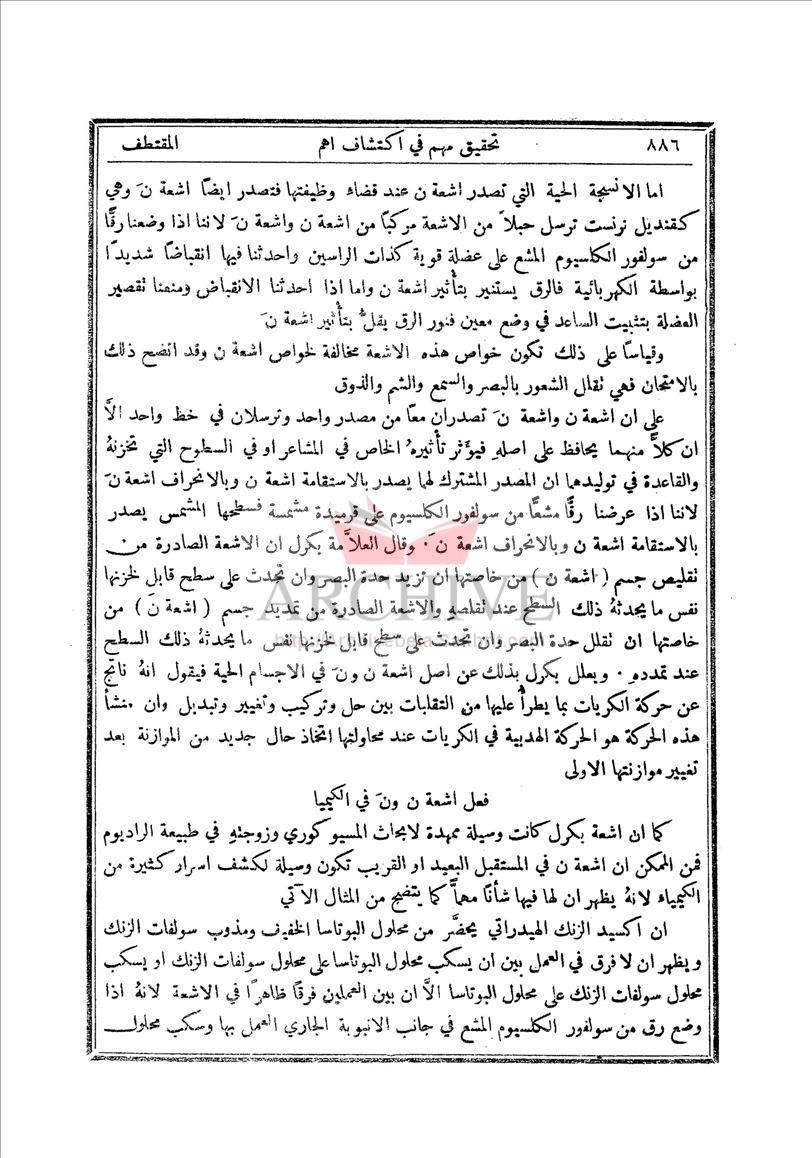 ٨٨٦ تحقيق مهم في اكتشاف اهم المقتطف
اما الانسجة الحية التي تصدر اشعة ن عند قضاء وظيفتها فتصدر ايضًا اشعة نَ وهي
كقنديل نرنست ترسل حبلاً من الاشعة مركبًا من اشعة ن واشعة نَ لاننا اذا وضعنا رقًّا
من سولفور الكلسيوم المشع على عضلة قوية كذات الراسين واحدثنا فيها انقباضًا شديدًا
بواسطة الكهربائية فالرق يستنير بتأثير اشعة ن واما اذا احدثنا الانقباض ومنعنا تقصير
العضلة بتثبيت الساعد في وضع معين فنور الرق يقلُّ بتأثير اشعة نَ
وقياسًا على ذلك تكون خواص هذه الاشعة مخالفة لخواص اشعة ن وقد اتضح ذلك
بالامتحان فهي تقلل الشعور بالبصر والسمع والشم والذوق
على ان اشعة ن واشعة نَ تصدران معًا من مصدر واحد وترسلان في خط واحد الاَّ
ان كلاًّ منهما يحافظ على اصلهِ فيؤثر تأثيرهُ الخاص في المشاعر او في السطوح التي تخزنهُ
والقاعدة في توليدهما ان المصدر المشترك لهما يصدر بالاستقامة اشعة ن وبالانحراف اشعة نَ
لاننا اذا عرضنا رقًّا مشعًّا من سولفور الكلسيوم على قرميدة مشمسة فسطحها المشمس يصدر
بالاستقامة اشعة ن وبالانحراف اشعة نَ ٠ وقال العلاَّمة بكرل ان الاشعة الصادرة من
تقليص جسم ( اشعة ن ) من خاصتها ان تزيد حدة البصر وان تحدث على سطح قابل لخزنها
نفس ما يحدثهُ ذلك السطح عند تقلصهِ والاشعة الصادرة من تمديد جسم ( اشعة نَ ) من
خاصتها ان تقلل حدة البصر وان تحدث على سطح قابل لخزنها نفس ما يحدثهُ ذلك السطح
عند تمدده ٠ ويعلل بكرل بذلك عن اصل اشعة ن ونَ في الاجسام الحية فيقول انهُ ناتج
عن حركة الكريات بما يطرأُ عليها من التقلبات بين حل وتركيب وتغيير وتبديل وان منشأ
هذه الحركة هو الحركة الهدبية في الكريات عند محاولتها اتخاذ حال جديد من الموازنة بعد
تغيير موازنتها الاولى
فعل اشعة ن ونَ في الكيميا
كما ان اشعة بكرل كانت وسيلة ممهدة لابحاث المسيو كوري وزوجتهِ في طبيعة الراديوم
فمن الممكن ان اشعة ن في المستقبل البعيد او القريب تكون وسيلة لكشف اسرار كثيرة من
الكيمياء لانهُ يظهر ان لها فيها شأنًا مهمًّا كما يتضح من المثال الآتي
ان اكسيد الزنك الهيدراتي يحضَّر من محلول البوتاسا الخفيف ومذوب سولفات الزنك
ويظهر ان لا فرق في العمل بين ان يسكب محلول البوتاسا على محلول سولفات الزنك او يسكب
محلول سولفات الزنك على محلول البوتاسا الاَّ ان بين العملين فرقًا ظاهرًا في الاشعة لانهُ اذا
وضع رق من سولفور الكلسيوم المشع في جانب الانبوبة الجاري العمل بها وسكب محلول
ARCHIVE